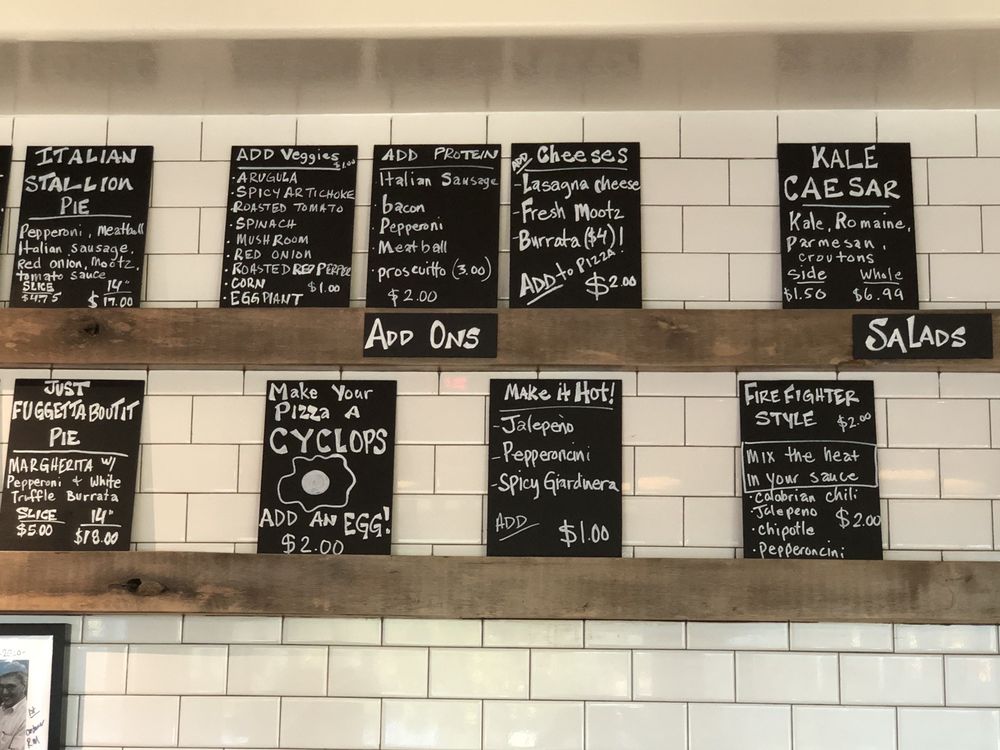 ITALIAN
STALLION
PIE
Pepperoni, Meatball
Italian sausage,
Red onion, Mootz,
tomato sauce
SLICE 14"
$4.75 $17.00
ADD Veggies $1.00
· ARUGULA
· SPICY ARTICHOKE
ROASTED TOMATO
· SPINACH
· MUSHROOM
· RED ONION
· ROASTED RED PEPPER
· CORN $1.00
· EGGPLANT
ADD PROTEIN
Italian Sausage
· bacon
· Pepperoni
· Meatball
· proscuitto (3.00)
$2.00
ADD Cheeses
- Lasagna cheese
- Fresh Mootz
- Burrata ($4)!
ADD to PIZZA! $2.00
KALE
CAESAR
Kale, Romaine,
Parmesan,
croutons
Side Whole
$1.50 $6.99
ADD ONS
SALADS
JUST
FUGGETTABOUTIT
PIE
MARGHERITA W/
Pepperoni + White
Truffle Burrata
SLICE 14"
$5.00 $18.00
Make Your
Pizza A
CYCLOPS
ADD AN EGG!
$2.00
Make it Hot!
- Jalepeño
- Pepperoncini
- Spicy Giardinera
ADD $1.00
FIREFIGHTER
STYLE $2.00
Mix the heat
in your sauce
· Calabrian chili
· Jalepeno $2.00
· chipotle
· Pepperoncini